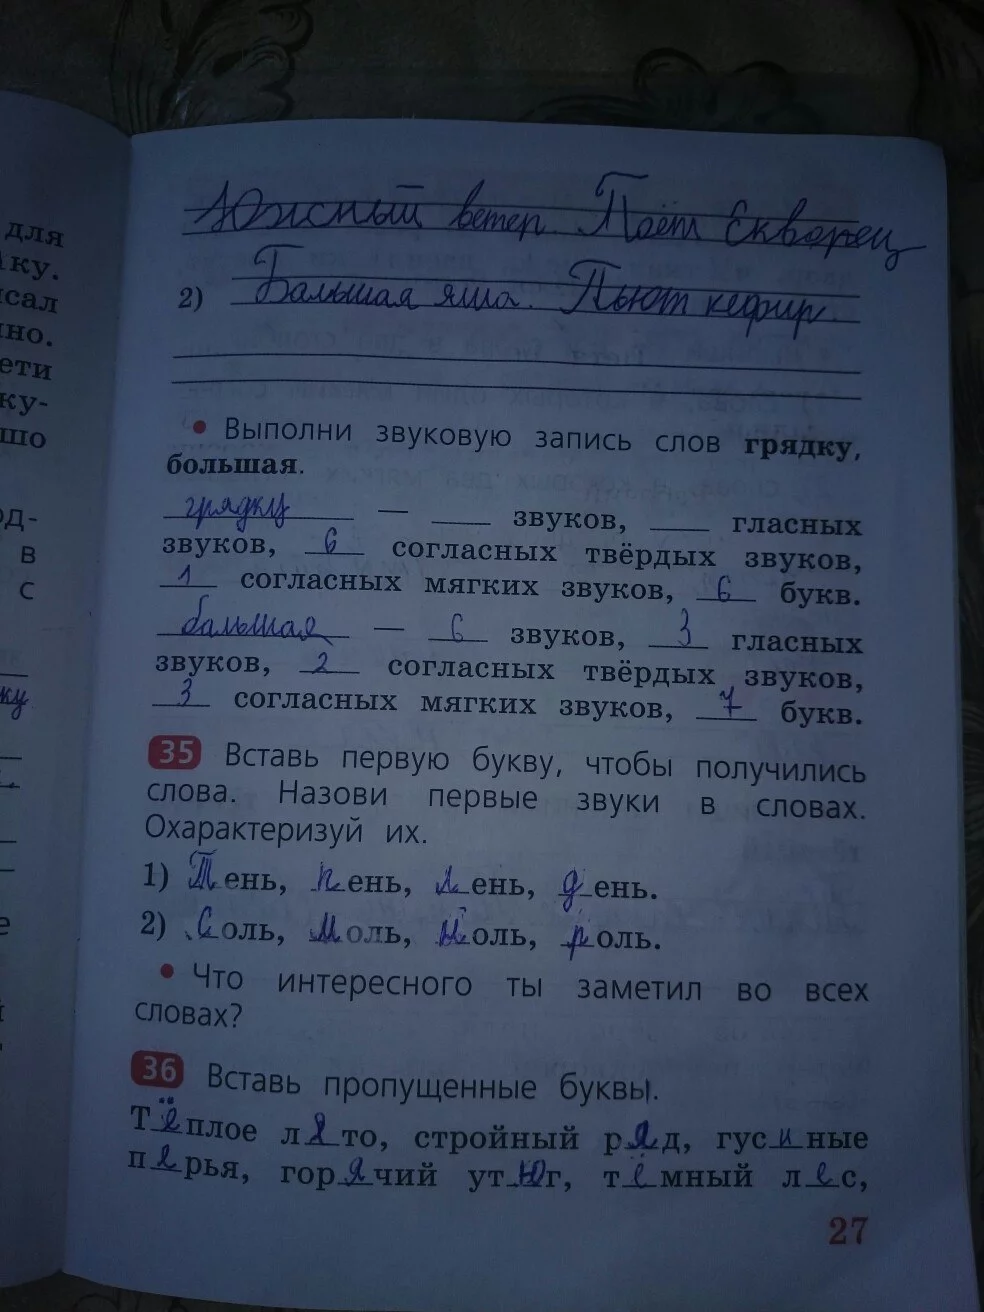 для
ку.
сал
но.
ети
ку-
шо
од-
в
с
ку
е
Южный ветер. Поёт Скворец
2) Балшая яша. Пьют кефир.
• Выполни звуковую запись слов грядку,
большая.
грядку — ___ звуков, ___ гласных
звуков, 6 согласных твёрдых звуков,
1 согласных мягких звуков, 6 букв.
балшая — 6 звуков, 3 гласных
звуков, 2 согласных твёрдых звуков,
3 согласных мягких звуков, 7 букв.
35 Вставь первую букву, чтобы получились
слова. Назови первые звуки в словах.
Охарактеризуй их.
1) Тень, пень, лень, день.
2) Соль, Моль, Ноль, роль.
• Что интересного ты заметил во всех
словах?
36 Вставь пропущенные буквы.
Тёплое лето, стройный ряд, гусиные
перья, горячий утюг, тёмный лес,
27